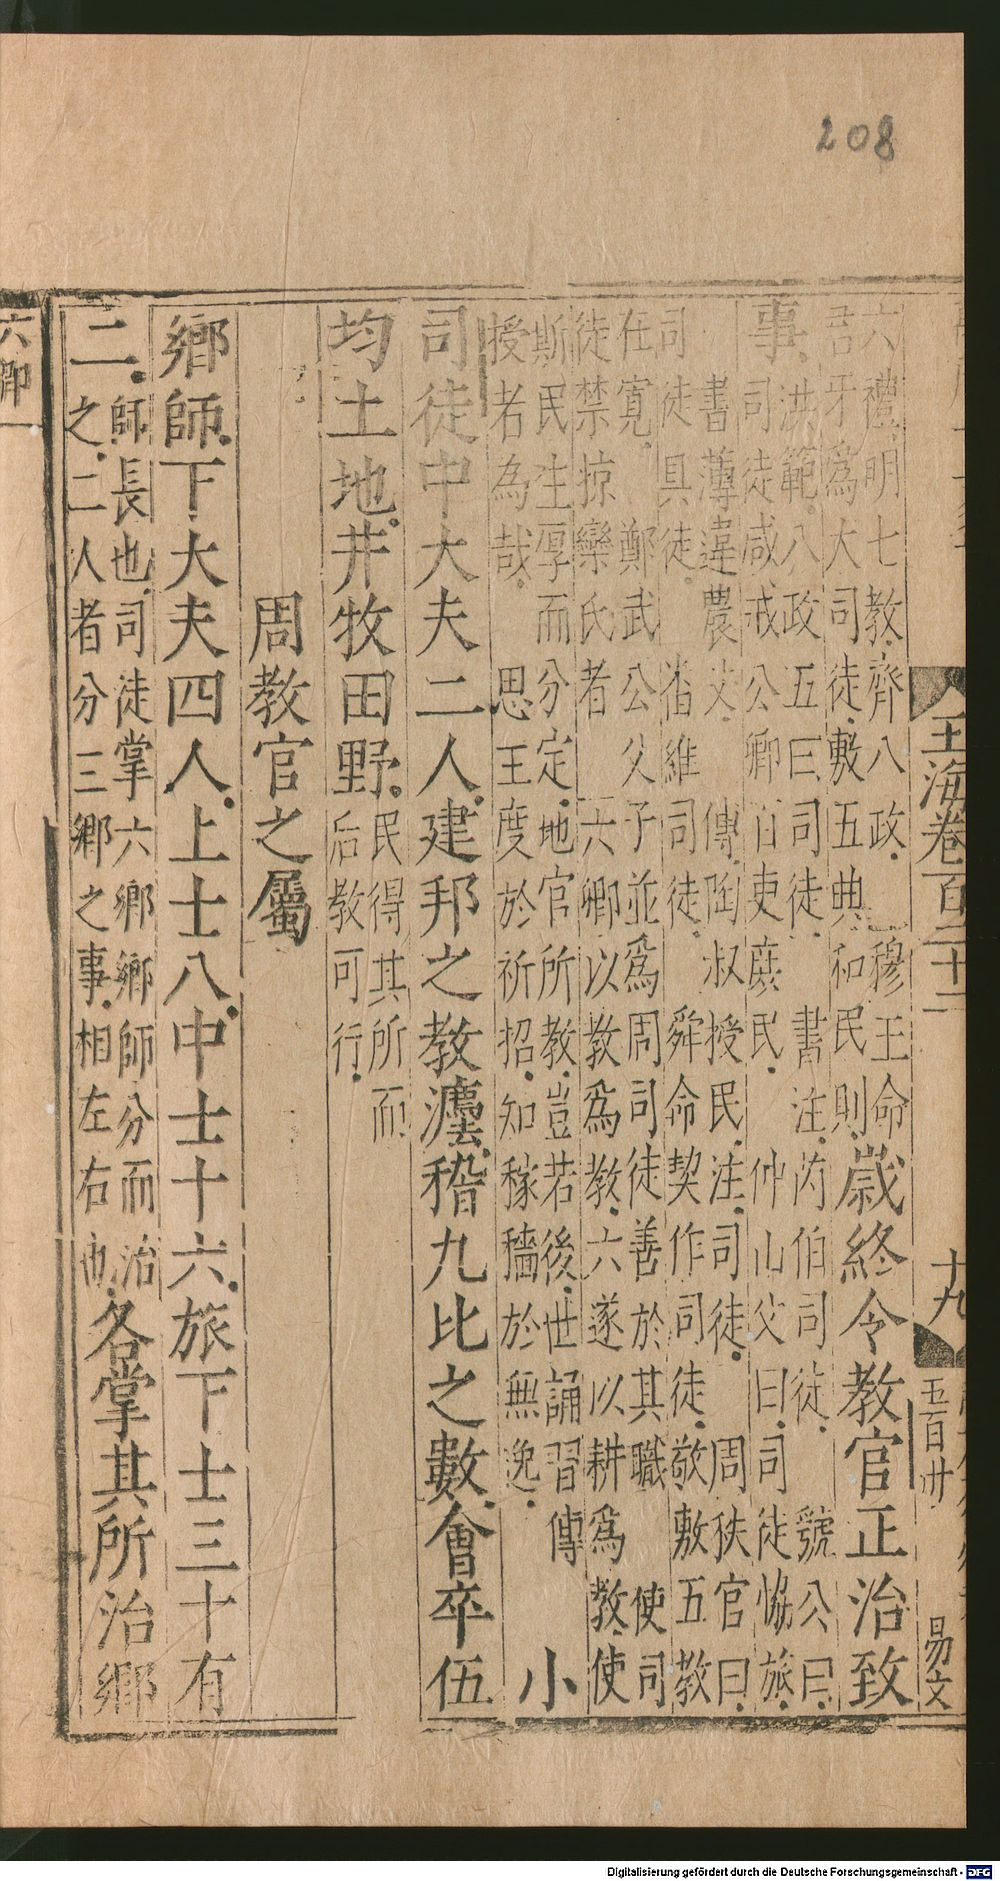 208
玉海卷百二十一
十九
五百卅
易文
六禮明七教齊八政穆王命
君牙為大司徒敷五典和民則歲終令教官正治致
事洪範八政五曰司徒書注芮伯司徒虢公曰
司徒咸戒公卿百吏庶民仲山父曰司徒協旅
書薄違農父傳陶叔授民注司徒周秩官曰
司徒具徒維司徒舜命契作司徒敬敷五教
在寬鄭武公父子並為周司徒善於其職使司
徒禁掠欒氏者六卿以教為教六遂以耕為教使
斯民生厚而分定地官所教豈若後世誦習傳
授者為哉思王度於祈招知稼穡於無逸小
司徒中大夫二人建邦之教灋稽九比之數會卒伍
均土地井牧田野民得其所而
后教可行
周教官之屬
鄉師下大夫四人上士八中士十六旅下士三十有
二師長也司徒掌六鄉鄉師分而治
之二人者分三鄉之事相左右也各掌其所治鄉
六卿一
Digitalisierung gefördert durch die Deutsche Forschungsgemeinschaft - DFG